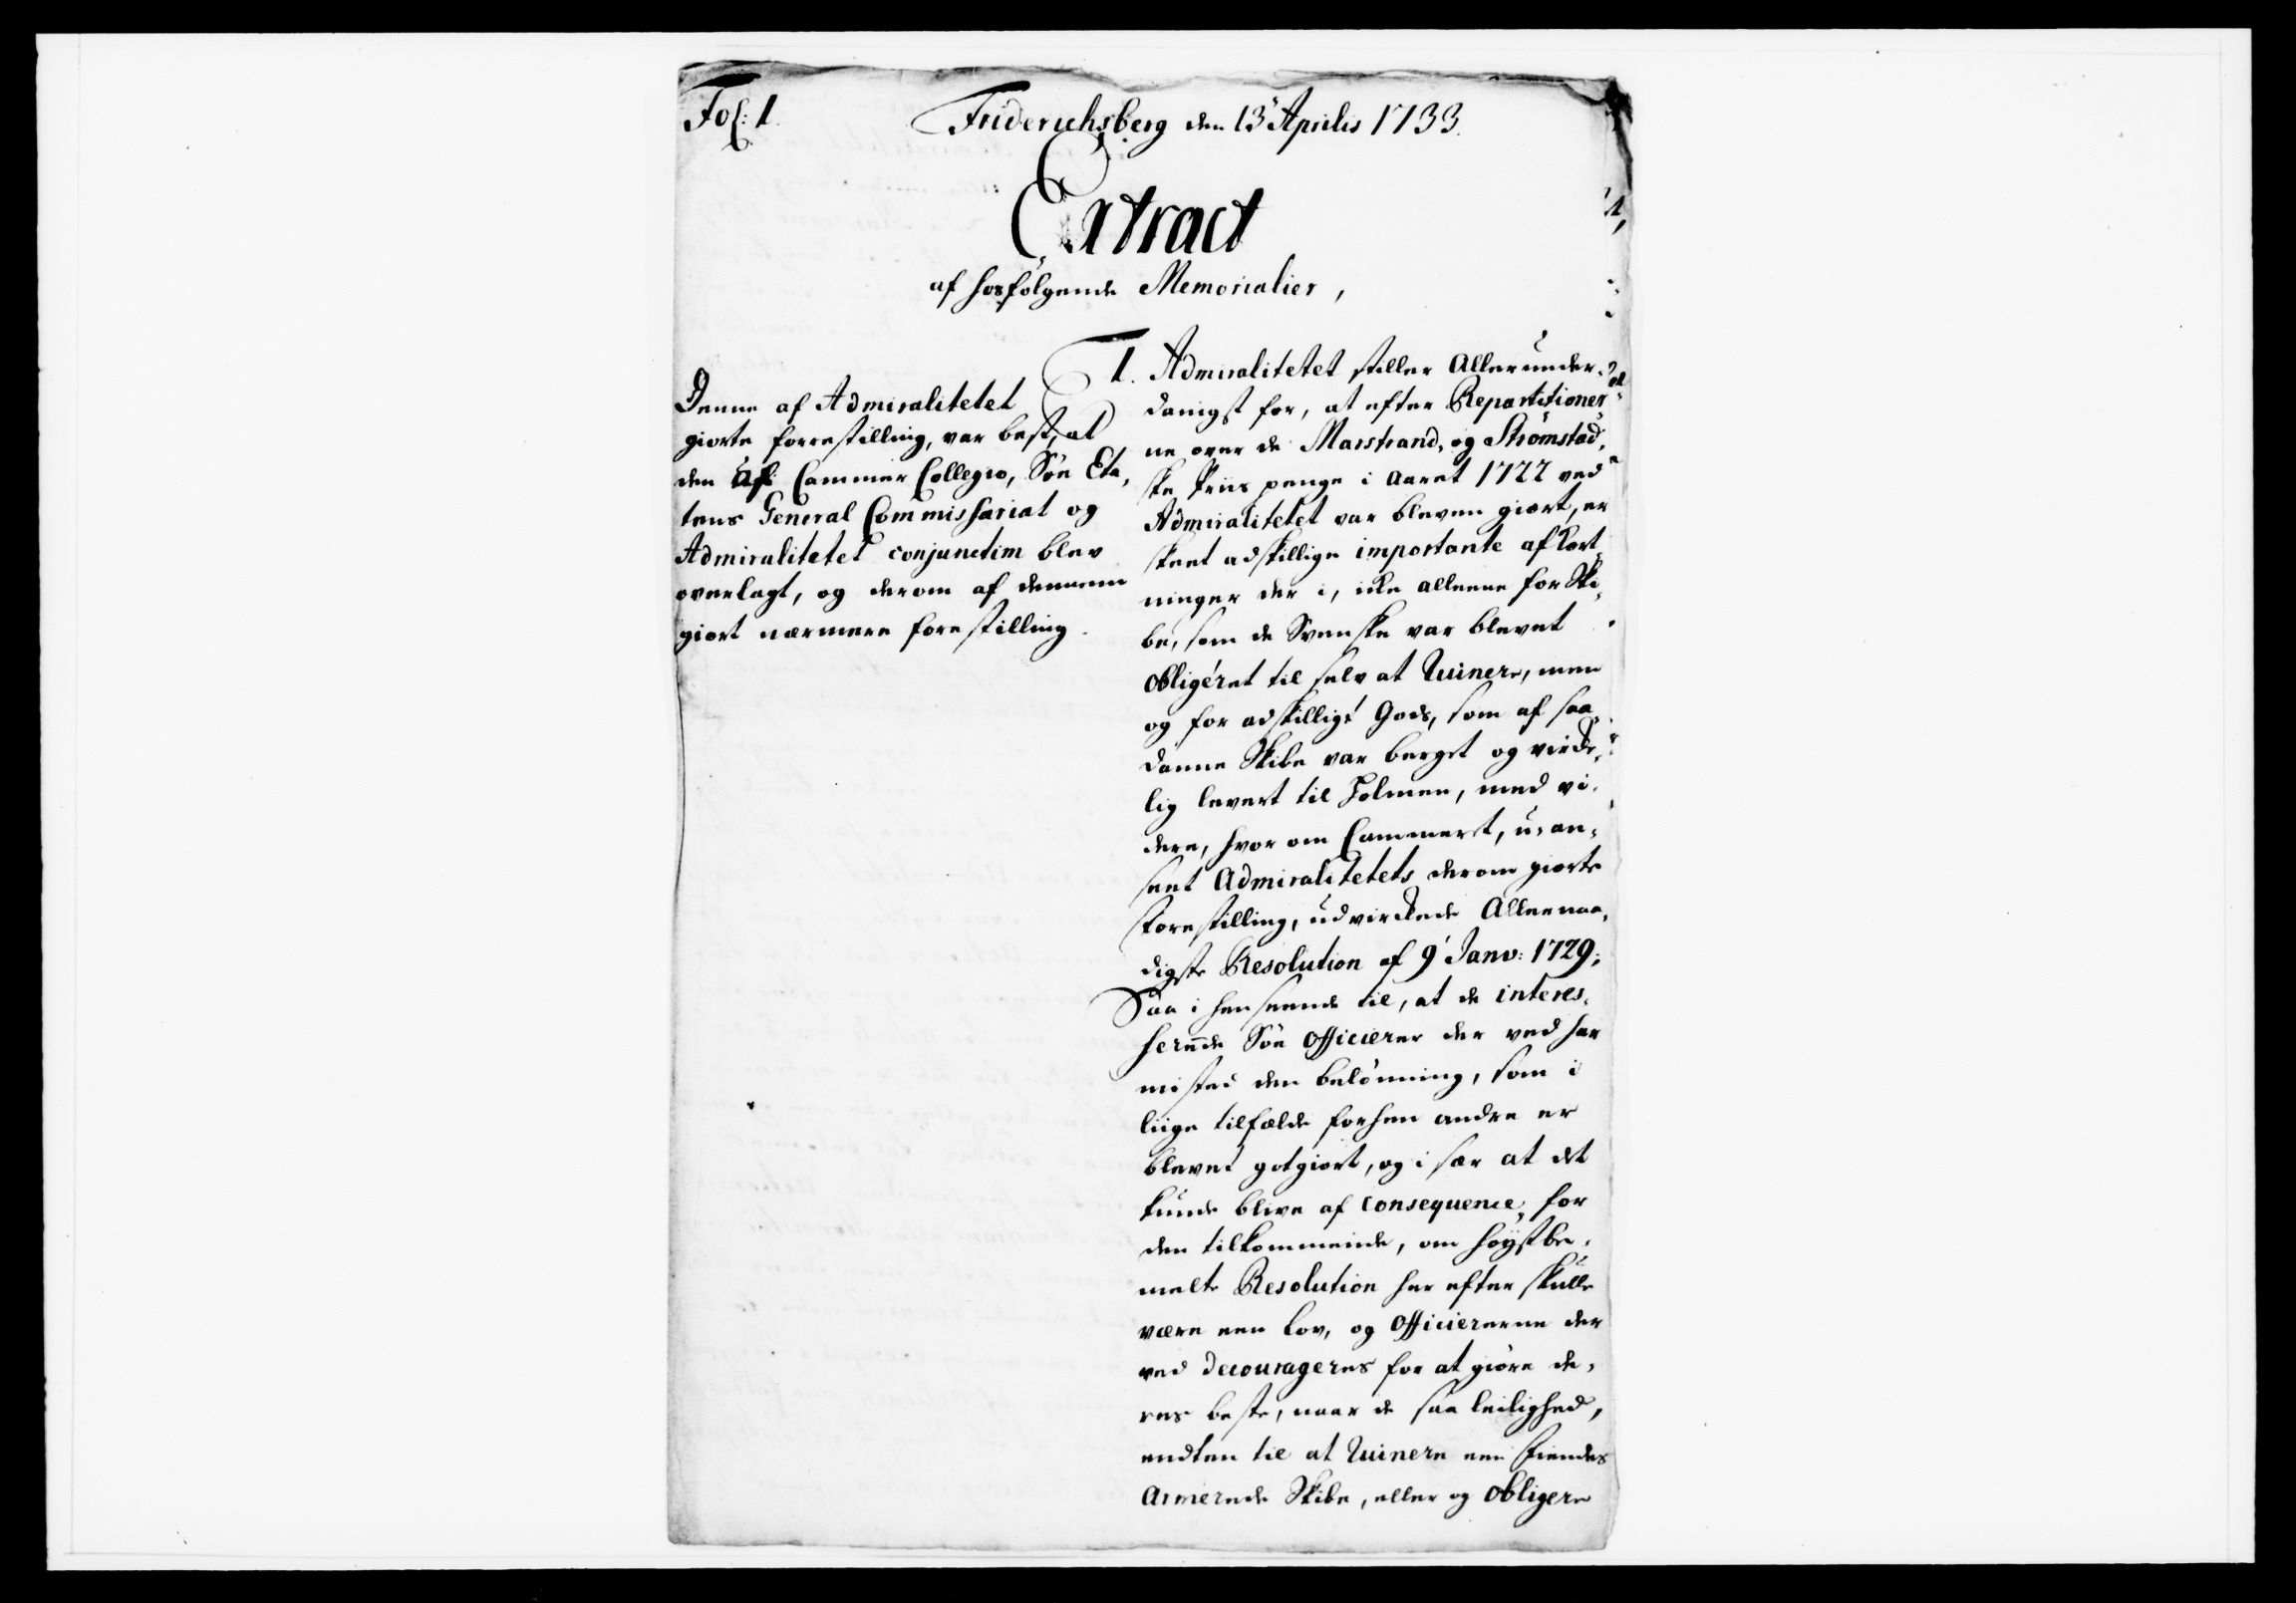 Fol: 1.
Friderichsberg den 13' Aprilis 1733.
Extract
af hosfølgende Memorialier,
Denne af Admiralitetet
giorte forrestilling, var best, at
den af Cammer Collegio, Søe Eta,
tens General Commissariat og
Admiralitetet conjunctim blev
overlagt, og derom af dennem
giort nærmere forestilling.
1. Admiralitetet stiller Allerunder,
danigst for, at efter Repartitioner,
ne over de Marstrand, og Strømstad,
ske Priis penge i Aaret 1722 ved
Admiralitetet var bleven giort, er
skeet adskillige importante afkort,
ninger der i, icke alleene for Ski,
be, som de Svenske var blevet
obligéret til selv at Ruinere, men
og for adskilligt Gods, som af saa,
danne Skibe var berget og virke,
lig levert til Holmen, med vi,
dere, hvor om Cammeret, u-an,
seet Admiralitetets derom giorte
forestilling, udvirkede Allernaa,
digste Resolution af 9' Janv: 1729;
Saa i henseende til, at de interes,
serede Søe Officierer der ved har
mistet den belønning, som i
liige tilfælde forhen andre er
blevet gotgiort, og i sær at det
kunde blive af consequence, for
den tilkommende, om høystbe,
melte Resolution her efter skulle
være een Lov, og Officiererne der
ved decourageres for at giøre de,
res beste, naar de faa leilighed,
endten til at Ruinere een Fiendes
Armerede Skibe, eller og obligere